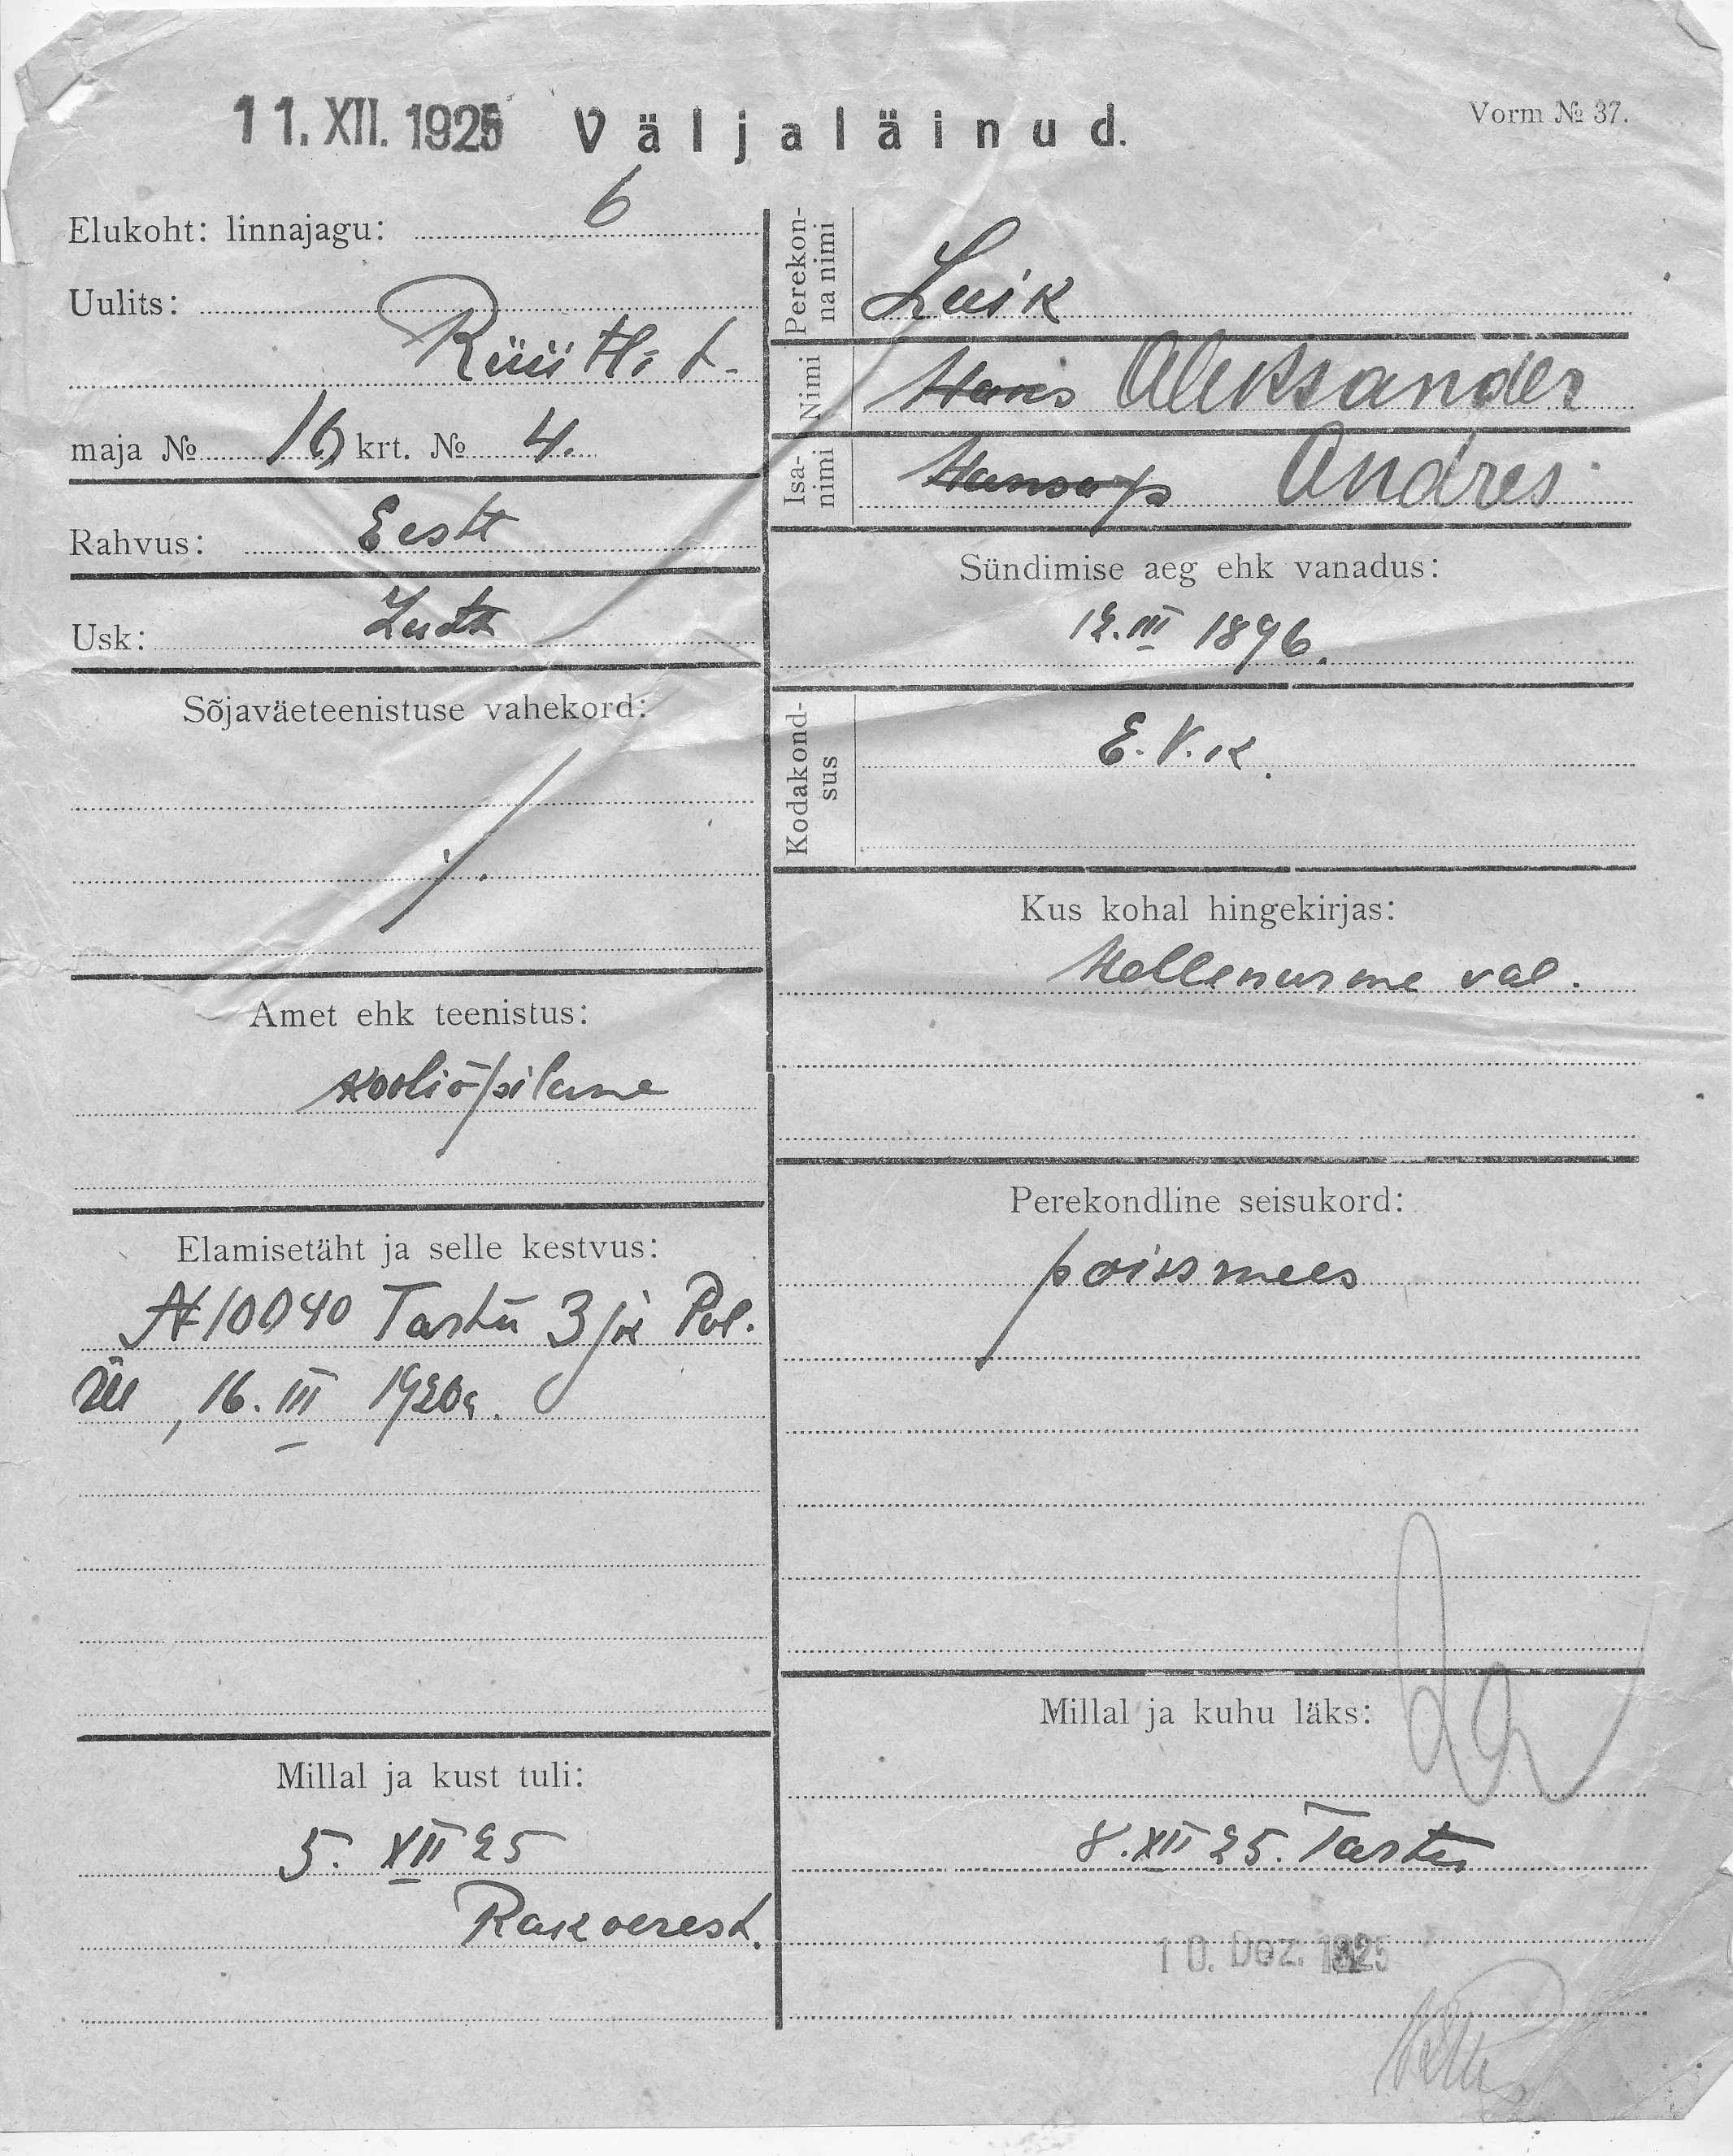 11. XII. 1925 Väljaläinud.
Vorm № 37.
Elukoht: linnajagu: 6
Uulits:
Rüütli t.
maja № 16 krt. № 4.
Rahvus: Eesti
Usk: Luth
Sõjaväeteenistuse vahekord:
Amet ehk teenistus:
kooliõpilane
Elamisetäht ja selle kestvus:
№ 10040 Tartu 3 jk Pol.
16. III 1920a.
Millal ja kust tuli:
5. XII 25
Rakverest.
Perekonna nimi
Luik
Nimi
Hans Aleksander
Isanimi
Andres
Sündimise aeg ehk vanadus:
12. III 1896.
Kodakondsus
E. V. k.
Kus kohal hingekirjas:
Hellenurme val.
Perekondline seisukord:
poissmees
Millal ja kuhu läks:
8. XII 25. Tartu
10. Dez. 1925